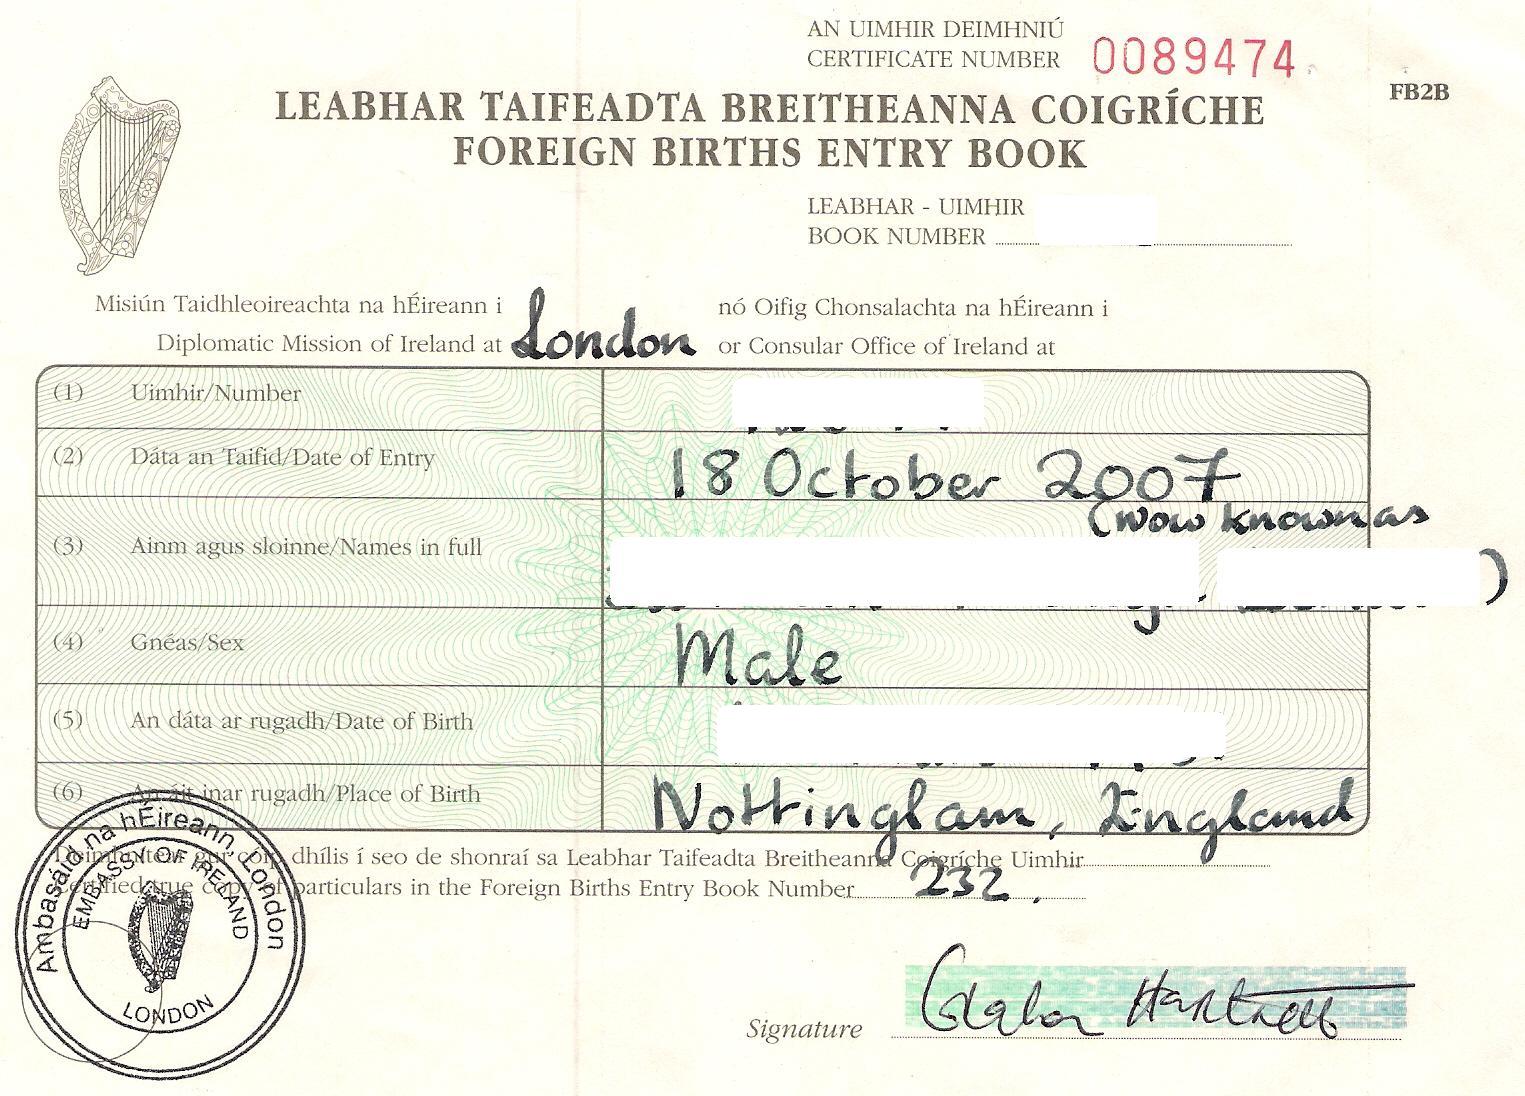 AN UIMHIR DEIMHNIÚ
CERTIFICATE NUMBER 0089474
FB2B
LEABHAR TAIFEADTA BREITHEANNA COIGRÍCHE
FOREIGN BIRTHS ENTRY BOOK
LEABHAR - UIMHIR
BOOK NUMBER
Misiún Taidhleoireachta na hÉireann i nó Oifig Chonsalachta na hÉireann i
Diplomatic Mission of Ireland at London or Consular Office of Ireland at
(1) Uimhir/Number
(2) Dáta an Taifid/Date of Entry 18 October 2007
(now known as
(3) Ainm agus sloinne/Names in full )
(4) Gnéas/Sex Male
(5) An dáta ar rugadh/Date of Birth
(6) An áit inar rugadh/Place of Birth Nottingham, England
Deimhnítear gur cóip dhílis í seo de shonraí sa Leabhar Taifeadta Breitheanna Coigríche Uimhir
Certified true copy of particulars in the Foreign Births Entry Book Number 232.
Ambasáid na hÉireann, London
EMBASSY OF IRELAND
LONDON
Signature Hartnett